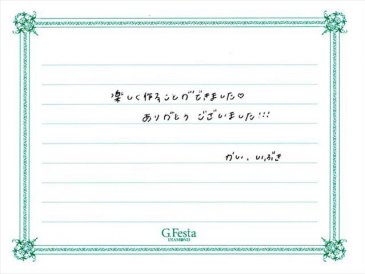 楽しく作ることができました♡
ありがとうございました!!!
かい、いぶき
G.Festa
DIAMOND